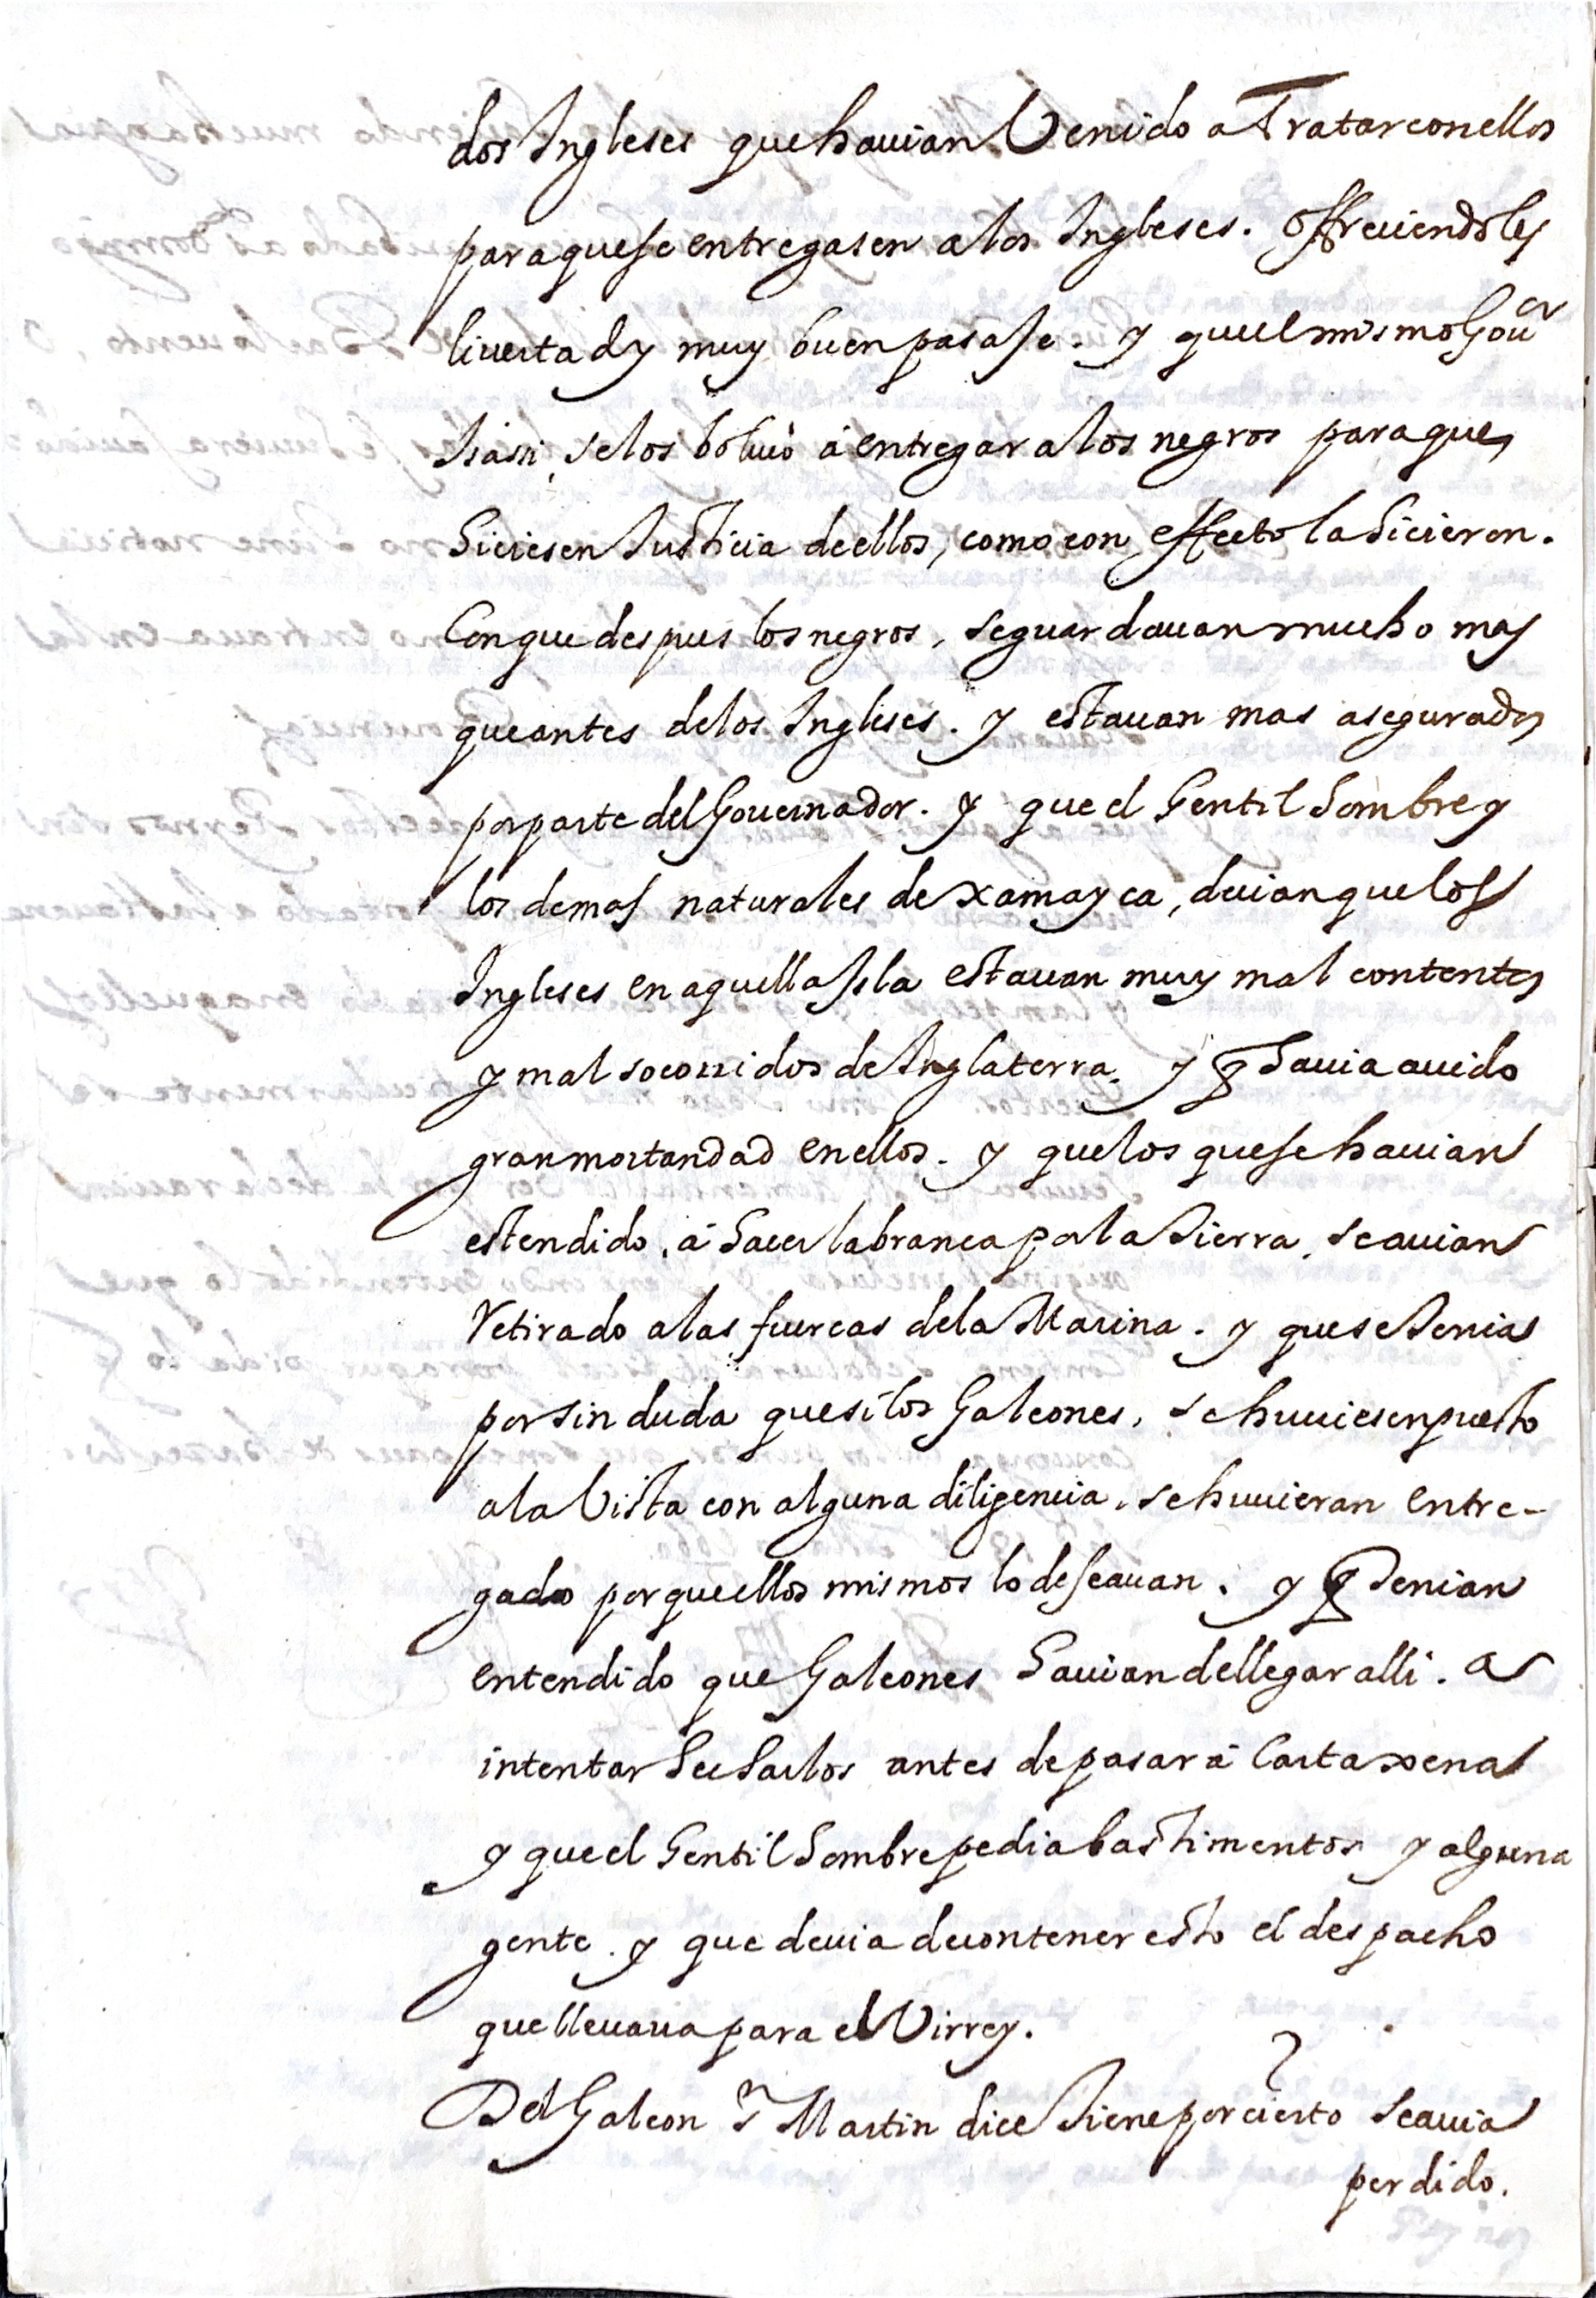 dos Ingleses que hauian Venido a Tratar con ellos
para que se entregasen a los Ingleses. Offreciendoles
liuertad y muy buen pasaje. y que el mismo Gouor
Isasi, se los boluió á entregar a los negros para que
hiciesen Justicia de ellos, como con effecto la hicieron.
Con que despues los negros, se guardauan mucho mas
que antes de los Ingleses. y estauan mas asegurados
por parte del Gouernador. y que el Gentil hombre y
los demas naturales de xamayca, decian que los
Ingleses en aquella Isla estauan muy mal contentos
y mal socorridos de Inglaterra. y q hauia auido
gran mortandad en ellos. y que los que se hauian
estendido, á hacer labranca por la tierra, se auian
Retirado a las fuercas de la Marina. y que se tenia
por sin duda que si los Galeones, se huuiesen puesto
a la Vista con alguna diligencia, se huuieran entre-
gado porque ellos mismos lo deseauan. y q tenian
entendido que Galeones hauian de llegar alli. a
intentar hecharlos antes de pasar á Cartaxena
y que el Gentil hombre pedia bastimentos y alguna
gente. y que deuia de contener esto el despacho
que lleuaua para el Virrey.
Del Galeon Sn Martin dice tiene por cierto se auia
perdido.